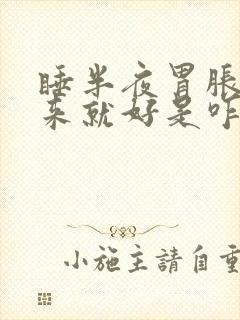 睡半夜胃脹
来就好是咋
小施主請自重